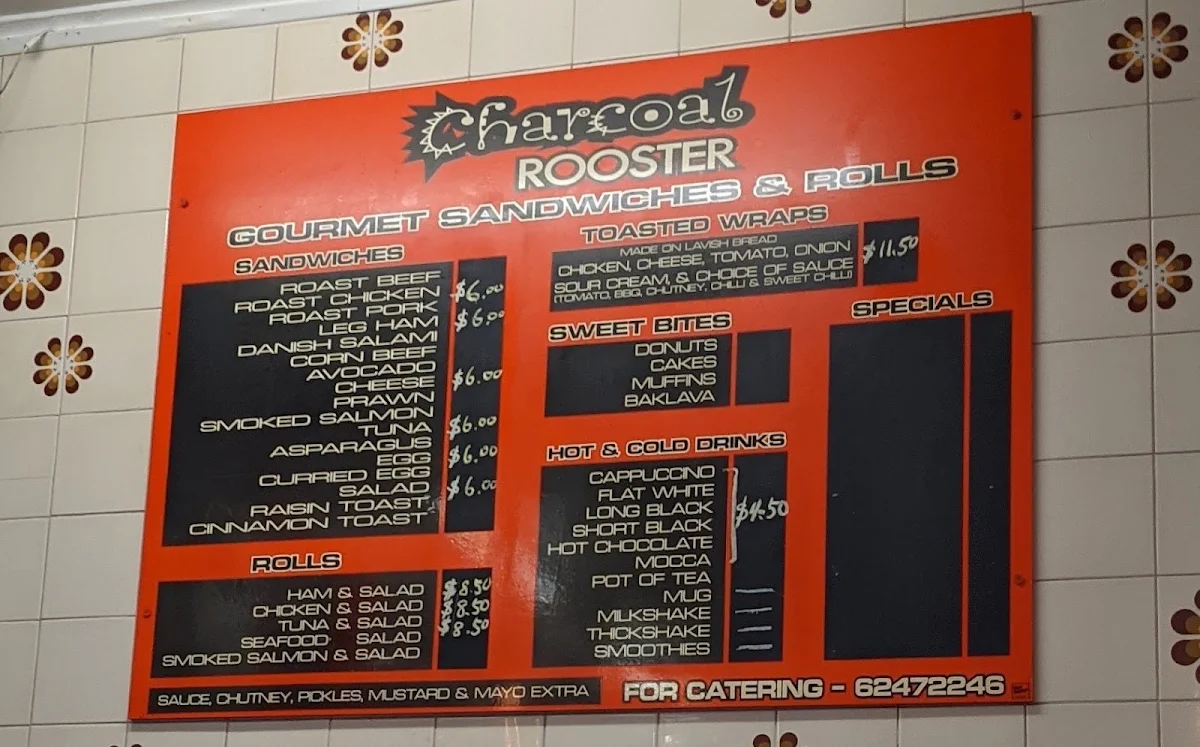 Charcoal
ROOSTER
GOURMET SANDWICHES & ROLLS
SANDWICHES
ROAST BEEF
ROAST CHICKEN $6.00
ROAST PORK
LEG HAM $6.00
DANISH SALAMI
CORN BEEF
AVOCADO
CHEESE $6.00
PRAWN
SMOKED SALMON
TUNA $6.00
ASPARAGUS
EGG $6.00
CURRIED EGG
SALAD $6.00
RAISIN TOAST
CINNAMON TOAST
ROLLS
HAM & SALAD $8.50
CHICKEN & SALAD $8.50
TUNA & SALAD $8.50
SEAFOOD SALAD
SMOKED SALMON & SALAD
SAUCE, CHUTNEY, PICKLES, MUSTARD & MAYO EXTRA
TOASTED WRAPS
MADE ON LAVISH BREAD
CHICKEN, CHEESE, TOMATO, ONION $11.50
SOUR CREAM, & CHOICE OF SAUCE
(TOMATO, BBQ, CHUTNEY, CHILLI & SWEET CHILLI)
SWEET BITES
DONUTS
CAKES
MUFFINS
BAKLAVA
HOT & COLD DRINKS
CAPPUCCINO
FLAT WHITE
LONG BLACK $4.50
SHORT BLACK
HOT CHOCOLATE
MOCCA
POT OF TEA
MUG
MILKSHAKE
THICKSHAKE
SMOOTHIES
SPECIALS
FOR CATERING - 62472246